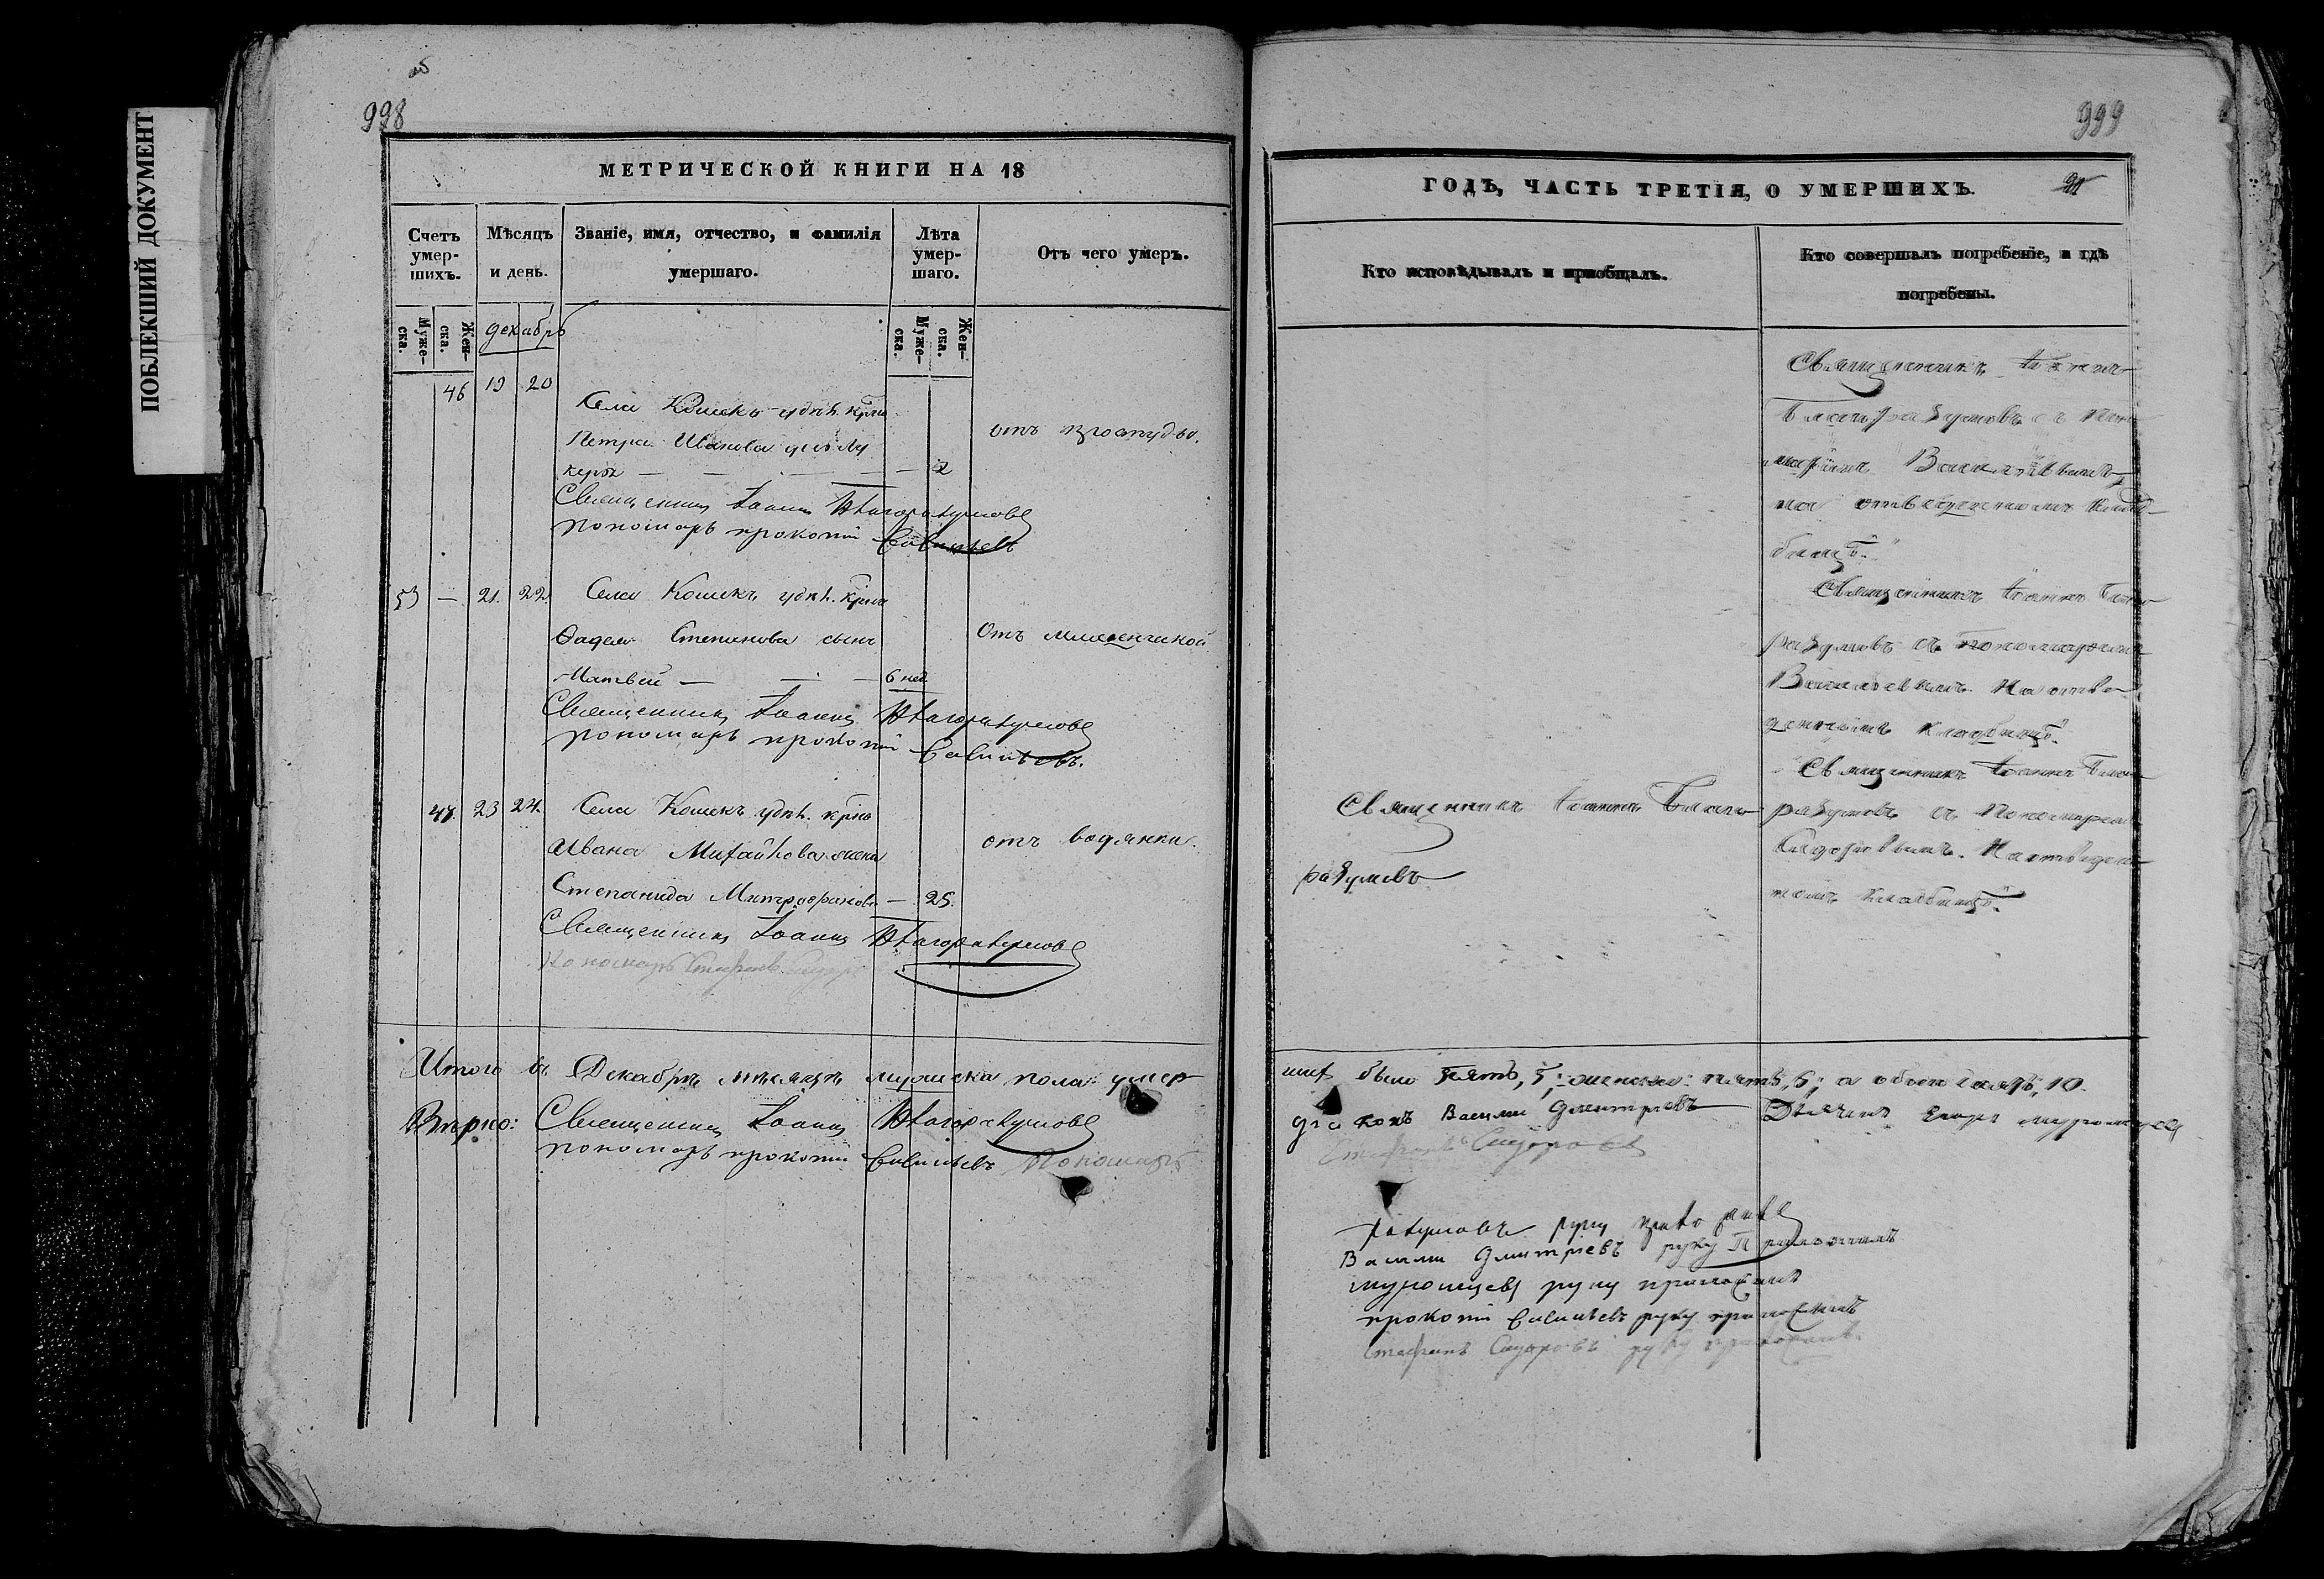 ПОБЛЕКШИЙ ДОКУМЕНТ
998
МЕТРИЧЕСКОЙ КНИГИ НА 18
Счетъ умер-шихъ.
Мѣсяцъ и день.
Званіе, имя, отчество, и фамилія умершаго.
Лѣта умер-шаго.
Отъ чего умеръ.
Муже-ска.
Жен-ска.
декабрь
Муже-ска.
Жен-ска.
46 19 20
Села Кошекъ удѣл. крна
Петра Иванова дочь Лу
керья — — — 2
отъ простуды.
Священникъ Іоаннъ Благоразумовъ
пономарь прокопій
53 — 21. 22. Села Кошекъ удѣл. крна
Фадея Степанова сынъ
Отъ младенческой
Матвей — — 6 нед.
Священникъ Іоаннъ Благоразумовъ
пономарь прокопій
47. 23 24. Села Кошекъ удѣл. крна
Ивана Михайлова жена
отъ водянки.
Степанида Митрофанова — 25.
Священникъ Іоаннъ Благоразумовъ
Пономарь Стефанъ Сидоровъ
Итого въ Декабрѣ мѣсяцѣ мужеска пола умер
Вѣрно: Священникъ Іоаннъ Благоразумовъ
пономарь прокопій Пономарь
999
ГОДЪ, ЧАСТЬ ТРЕТІЯ, О УМЕРШИХЪ.
Кто исповѣдывалъ и пріобщалъ.
Кто совершалъ погребеніе, и гдѣ погребены.
Священникъ Іоаннъ
Благоразумовъ съ Поно
маремъ
на отведенномъ клад
бищѣ.
Священникъ Іоаннъ Благо
разумовъ съ пономаремъ
На отве
денномъ кладбищѣ.
Священникъ Іоаннъ Благо
разумовъ съ Пономаремъ
Сидоровымъ. На отведен
номъ кладбищѣ.
Священникъ Іоаннъ Благо
разумовъ
шихъ было пять, 5; женска: пять, 5; а обоего 10.
діаконъ Василій Дмитріевъ Дьячекъ Егоръ Муромцевъ
Стефанъ Сидоровъ
разумовъ руку приложилъ
Василій Дмитріевъ руку Приложилъ
муромцевъ руку приложилъ
прокопій руку приложилъ
Стефанъ Сидоровъ руку приложилъ.